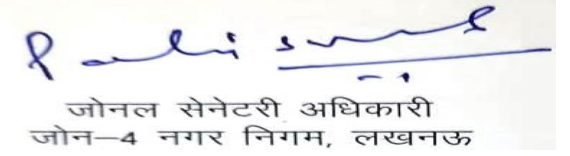 जोनल सेनेटरी अधिकारी
जोन–4 नगर निगम, लखनऊ